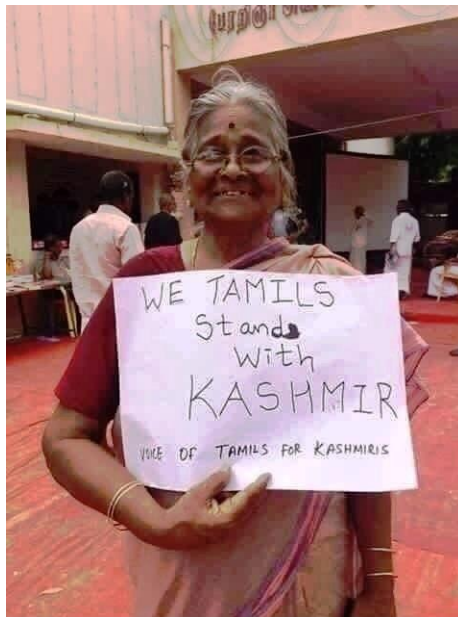 பேரறிஞர் அண்ணா
WE TAMILS
Stands
With
KASHMIR
VOICE OF TAMILS FOR KASHMIRIS